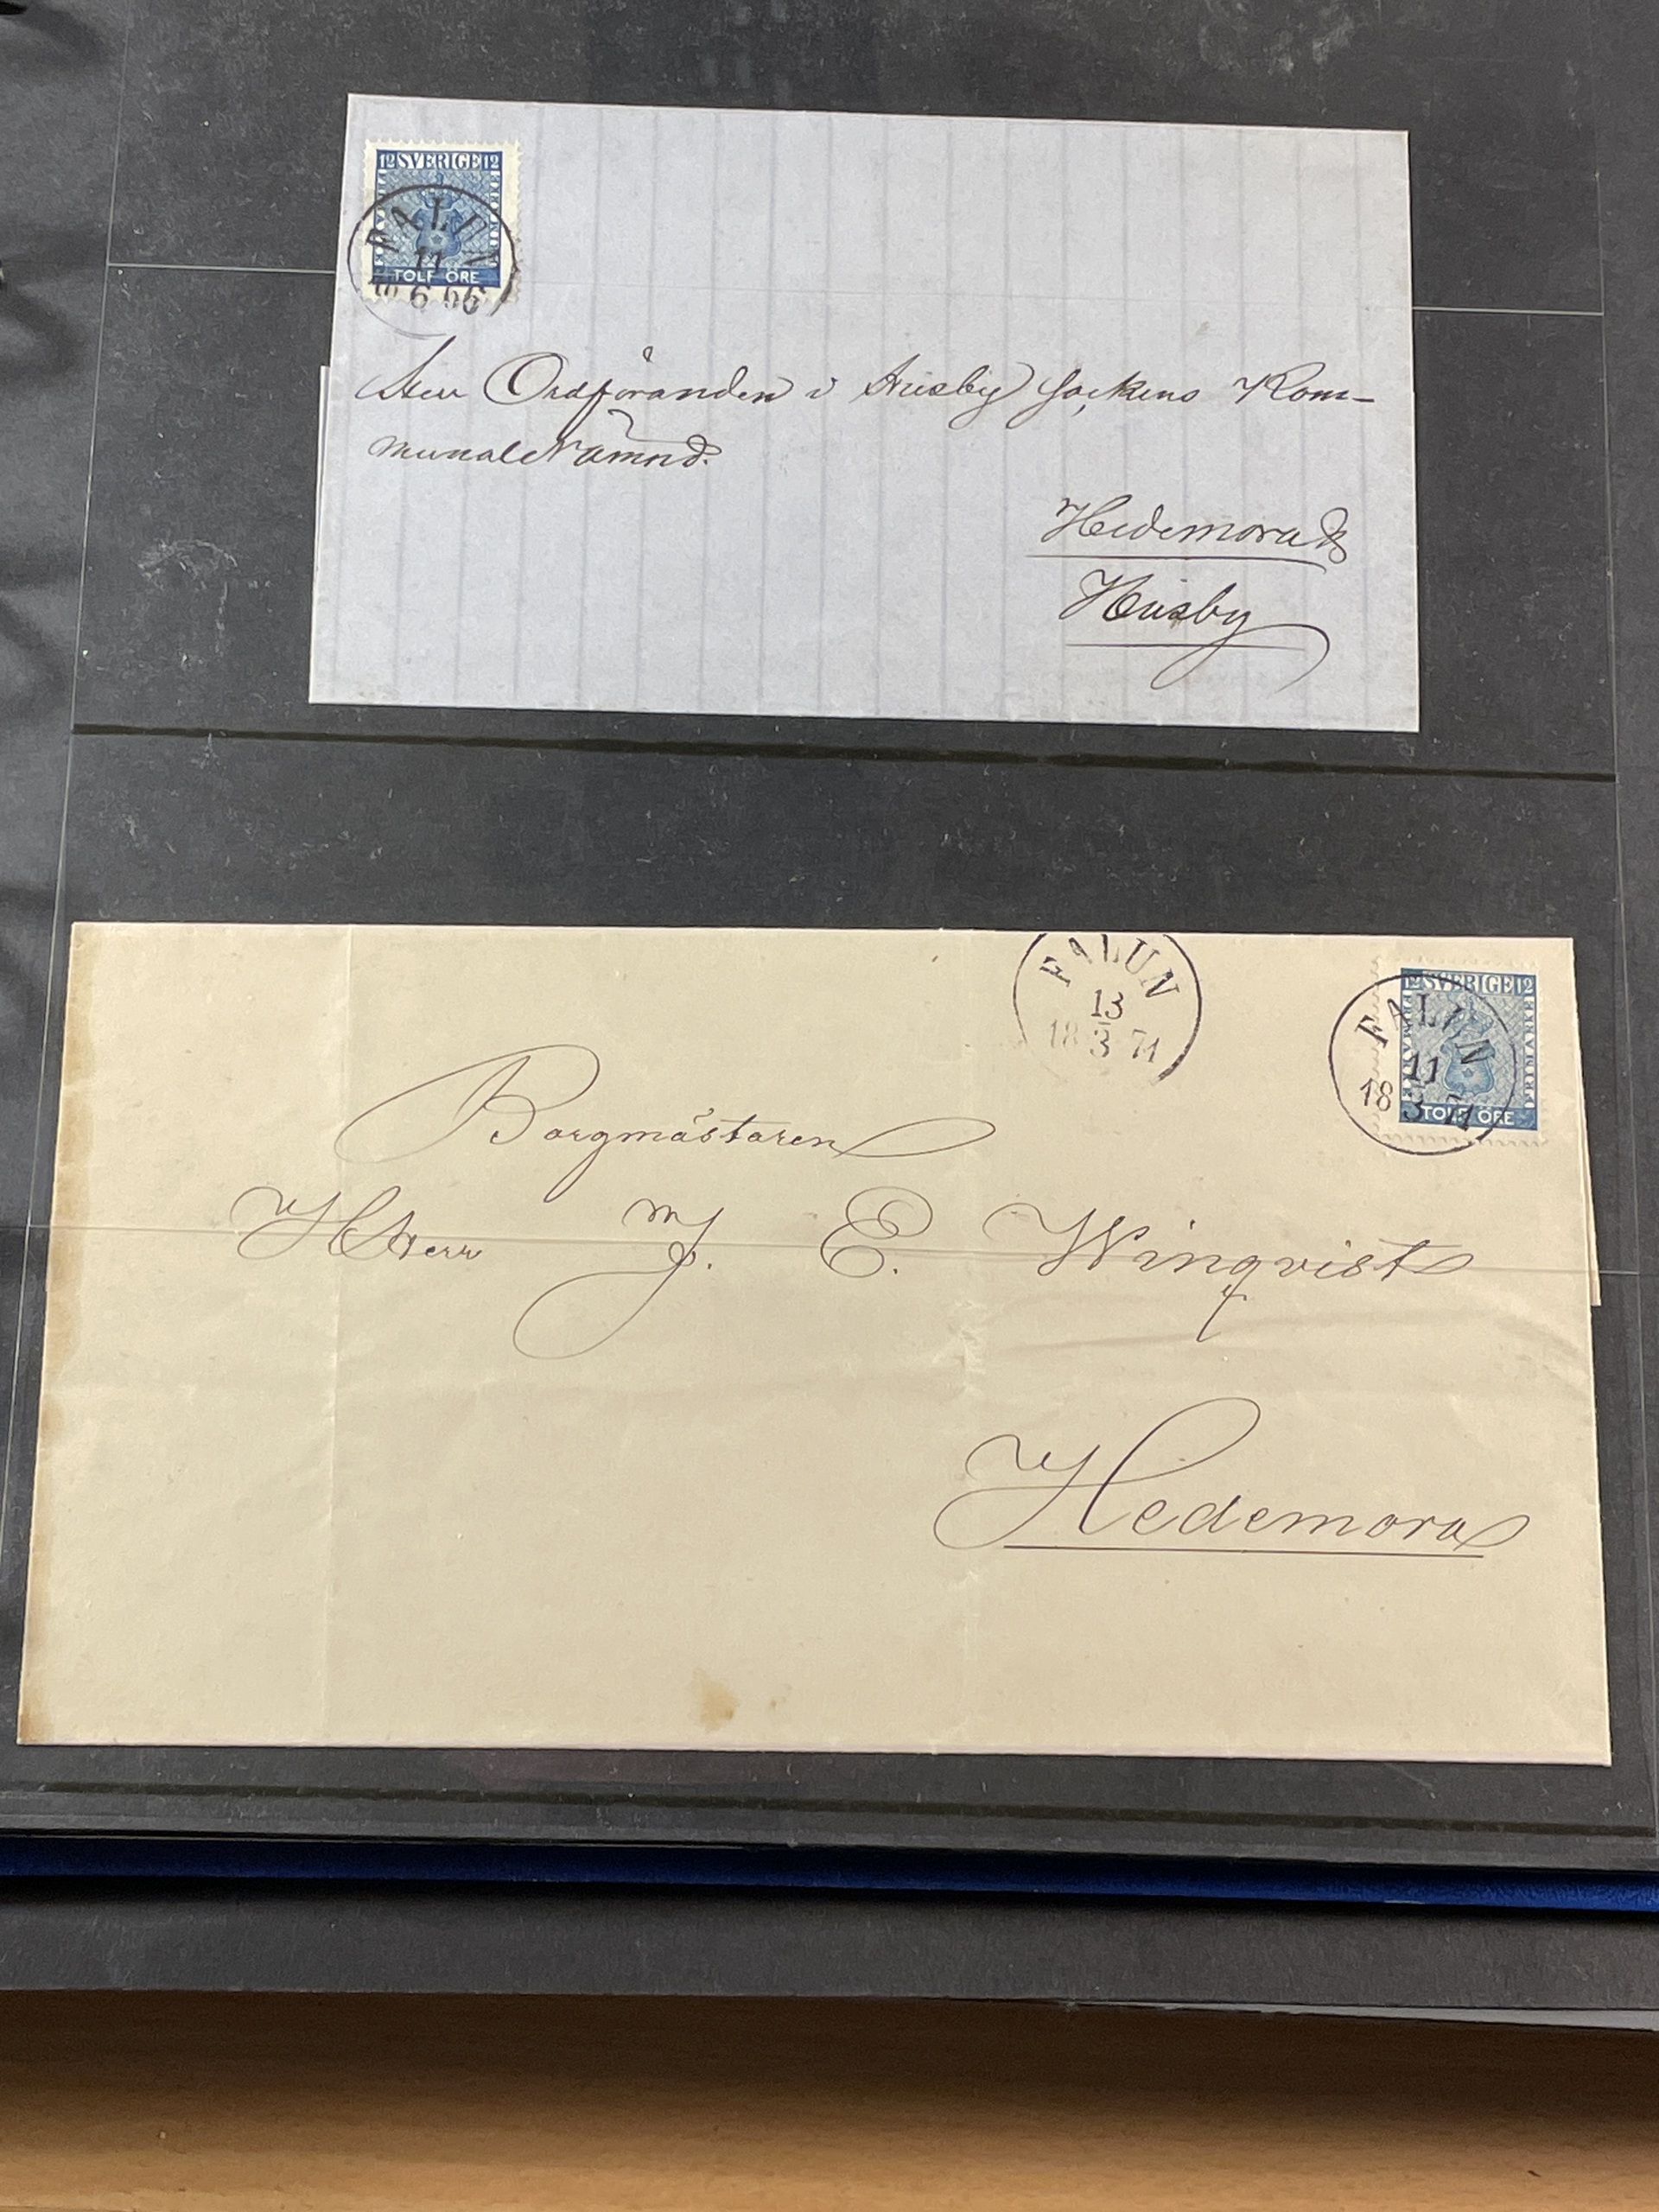 12 SVERIGE 12
FALUN
11
6 66
TOLF ÖRE
Herr Ordföranden i Husby Sockens Kom-
munal Nämnd.
Hedemora &
Husby
FALUN
13
18 3 71
12 SVERIGE 12
FRIMÄRKE
FALUN
11
18 3 71
TOLF ÖRE
Borgmästaren
Herr J. E. Winqvist
Hedemora